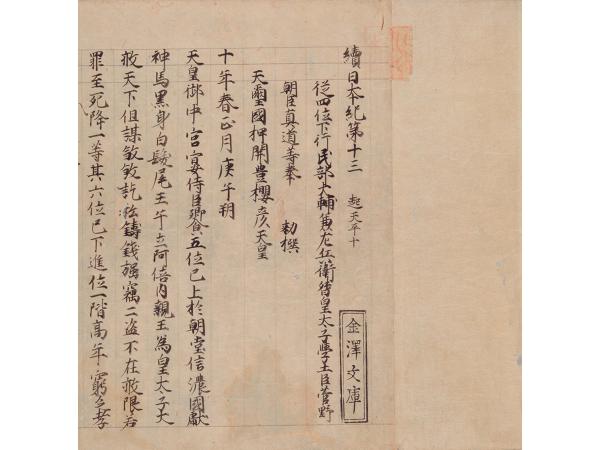 續日本紀第十三 起天平十
從四位下行民部大輔兼左兵衛督皇太子學士臣菅野
朝臣真道等奉 勅撰
天璽國押開豊櫻彦天皇
十年春正月庚午朔
天皇御中宮宴侍臣饗五位已上於朝堂信濃國獻
神馬黒身白髦尾壬午立阿倍内親王為皇太子大
赦天下但謀殺殺訖私鑄錢強竊二盗不在赦限若
罪至死降一等其六位已下進位一階高年窮乏孝
金澤文庫